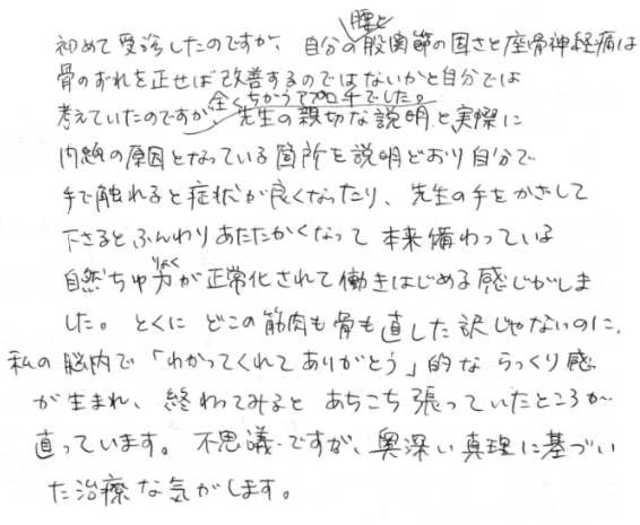 腰と
初めて受診したのですが、自分の股関節の固さと座骨神経痛は
骨のずれを正せば改善するのではないかと自分では
全くちがうアプローチでした。
考えていたのですが、先生の親切な説明と実際に
問題の原因となっている箇所を説明どおり自分で
手で触れると症状が良くなったり、先生の手をかざして
下さるとふんわりあたたかくなって本来備わっている
りょく
自然ちゆ力が正常化されて働きはじめる感じがしま
した。とくにどこの筋肉も骨も直した訳じゃないのに、
私の脳内で「わかってくれてありがとう」的ならっくり感
が生まれ、終わってみるとあちこち張っていたところが
直っています。不思議ですが、奥深い真理に基づい
た治療な気がします。